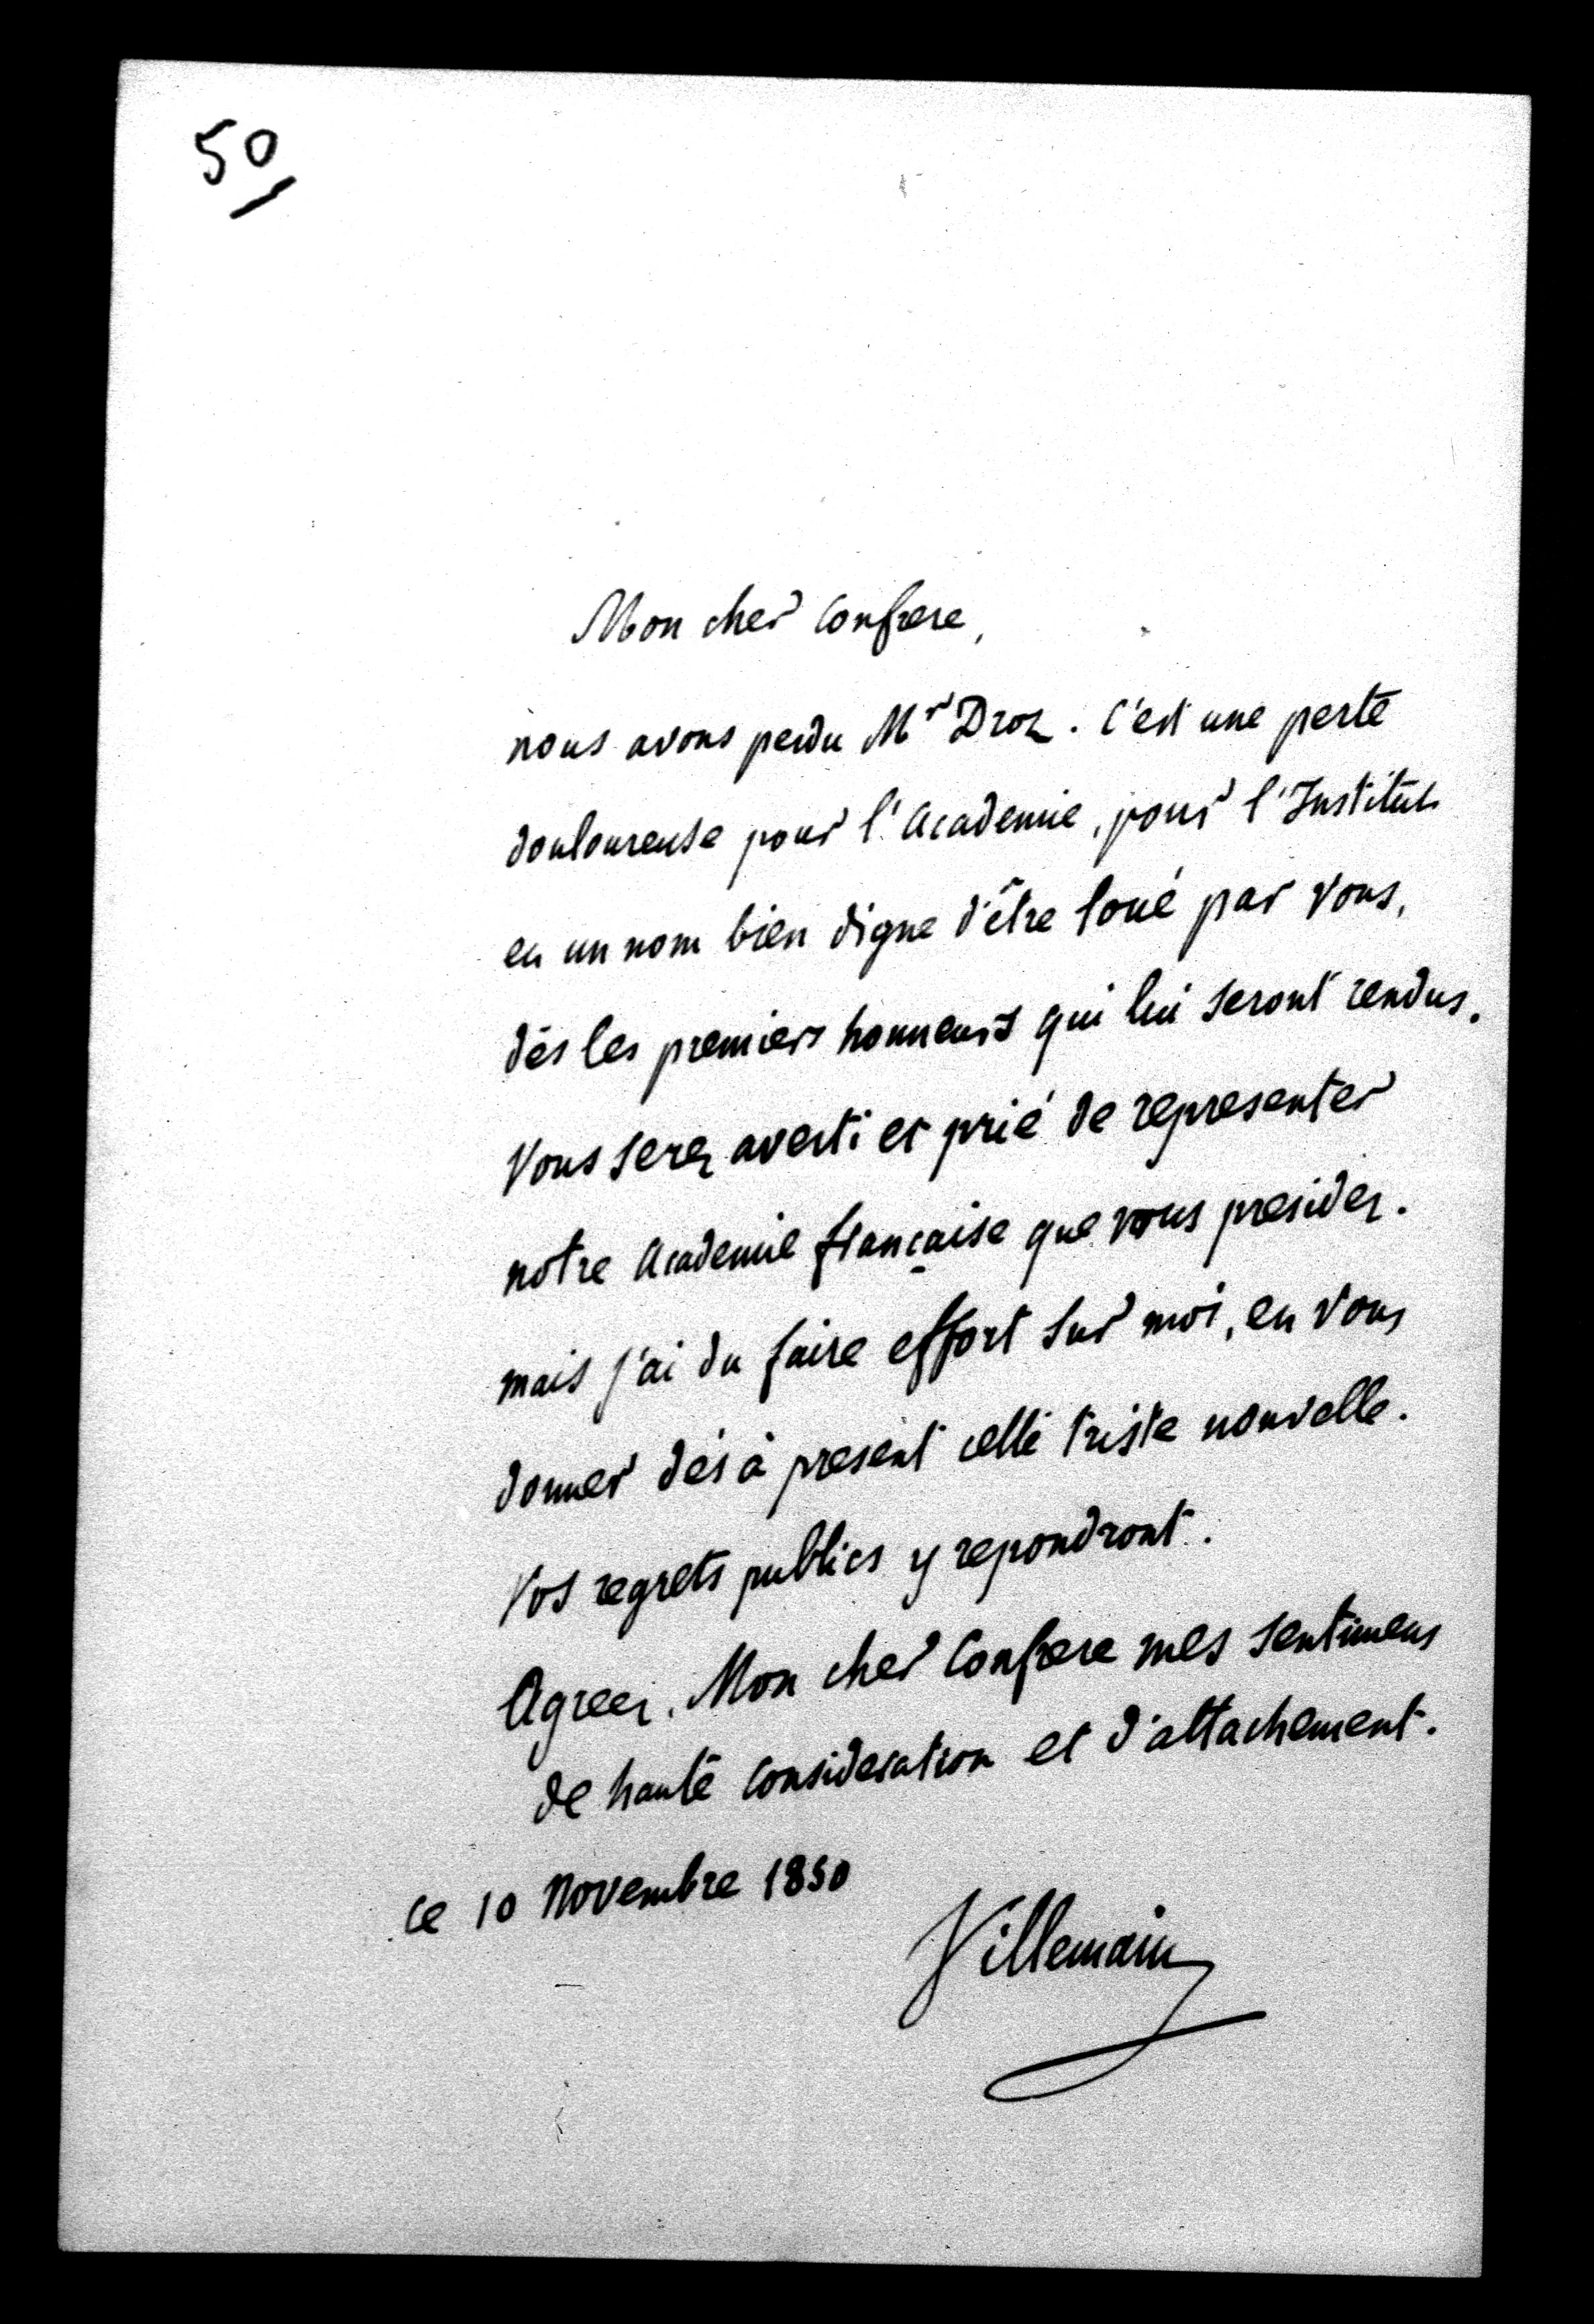 50
Mon cher confrere,
nous avons perdu Mr Droz. C'est une perte
douloureuse pour l'Academie, pour l'Institut
et un nom bien digne d'être loué par vous,
dès les premiers honneurs qui lui seront rendus.
Vous serez averti et prié de representer
notre Academie française que vous presidez.
mais j'ai du faire effort sur moi, en vous
donner dès à present cette triste nouvelle.
Vos regrets publics y repondront.
Agreez, Mon cher Confrere mes sentimens
de haute consideration et d'attachement.
ce 10 Novembre 1850
Villemain